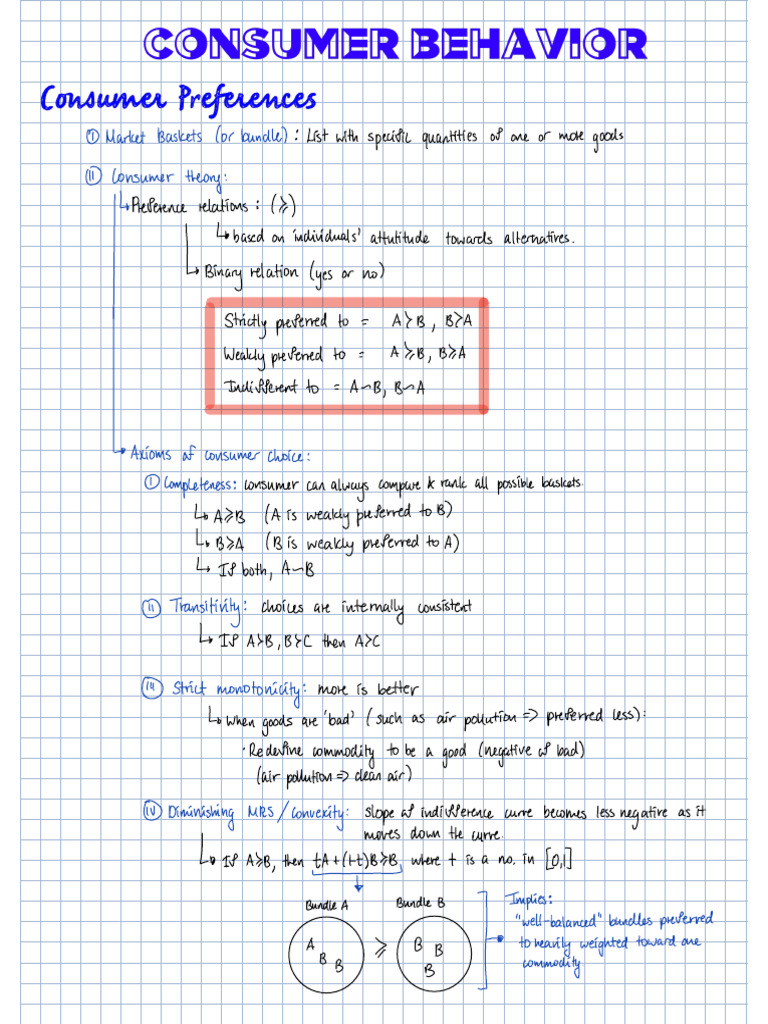 CONSUMER BEHAVIOR
Consumer Preferences
① Market Baskets (or bundle) : List with specific quantities of one or more goods
Ⓘⓘ Consumer theory:
↳ Preference relations : (≽)
↳ based on individuals' attutitude towards alternatives.
↳ Binary relation (yes or no)
Strictly preferred to = A≻B, B≻A
Weakly preferred to = A≽B, B≽A
Indifferent to = A∽B, B∽A
↳ Axioms of consumer choice:
① Completeness: consumer can always compare & rank all possible baskets.
↳ A≽B (A is weakly preferred to B)
↳ B≽A (B is weakly preferred to A)
↳ If both, A∽B
(ii) Transitivity: choices are internally consistent
↳ If A≻B, B≻C then A≻C
(iii) Strict monotonicity: more is better
↳ When goods are 'bad' (such as air pollution => preferred less):
· Redefine commodity to be a good (negative of bad)
(air pollution => clean air)
(iv) Diminishing MRS / convexity: slope of indifference curve becomes less negative as it
moves down the curve.
↳ If A≽B, then tA+(1-t)B≽B, where t is a no. in [0,1]
Bundle A Bundle B
A B B ≽ B B B
Implies:
"well-balanced" bundles preferred
to heavily weighted toward one
commodity